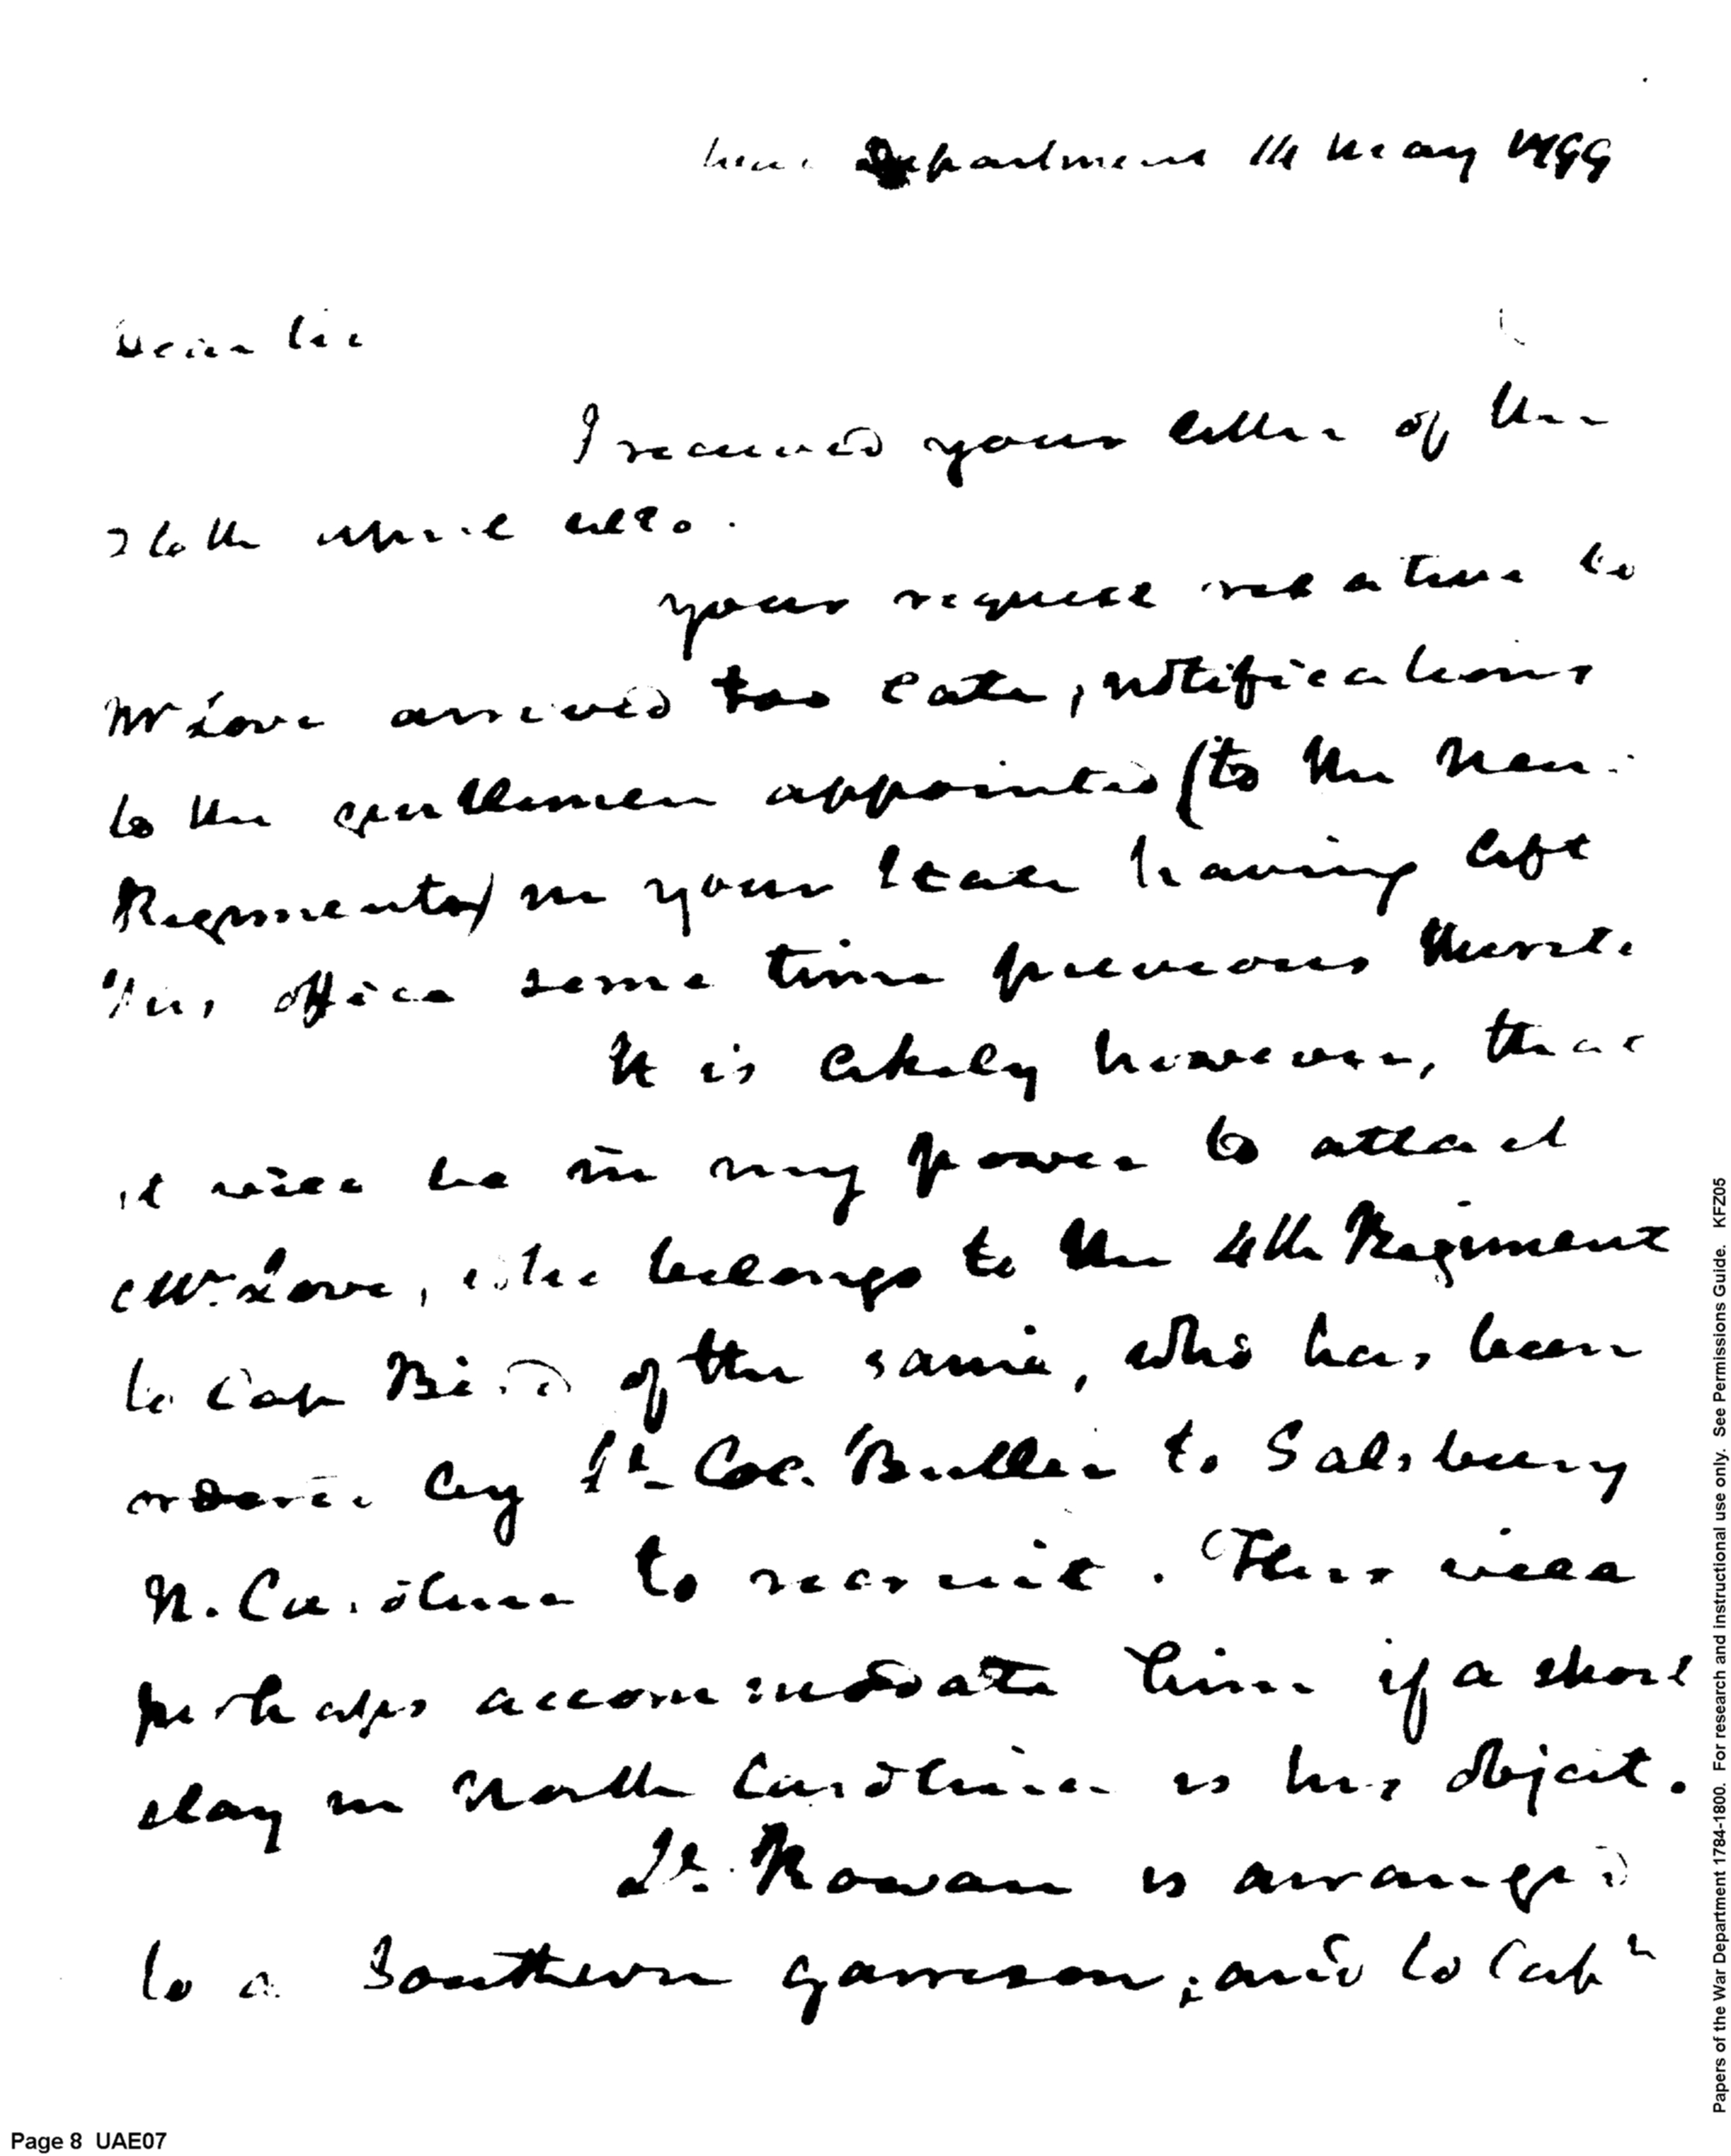 War Department 14 May 1799
Dear Sir
I received your letter of the
26th April ulto.
Your request relative to
Mr Love arrived too late, notifications
to the gentlemen appointed (to the new
Regiments) in your State having left
this office some time previous thereto
It is likely however, that
it will be in my power to attach
Mr. Love, who belongs to the 4th Regiment
to Cap Bird of the same, who has been
ordered by Lt Col. Butler to Salisbury
N. Carolina to recruit. This will
perhaps accommodate him if a short
stay in North Carolina is his object.
Lt. Rowan is arranged
to a Southern garrison; and to Capn
Page 8 UAE07
Papers of the War Department 1784-1800. For research and instructional use only. See Permissions Guide. KFZ05